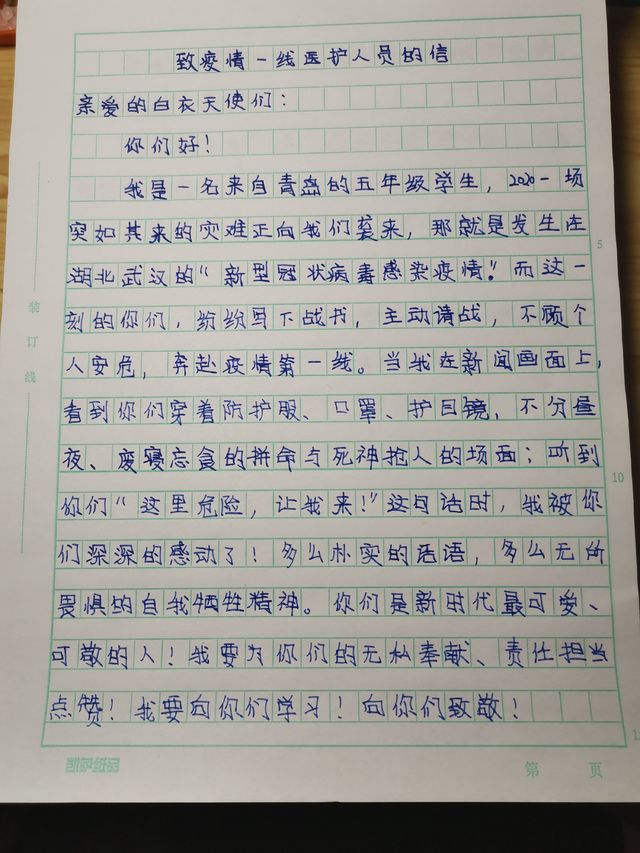 致疫情一线医护人员的信
亲爱的白衣天使们：
你们好！
我是一名来自青岛的五年级学生，2020一场
突如其来的灾难正向我们袭来，那就是发生在
湖北武汉的“新型冠状病毒感染疫情！”而这一
刻的你们，纷纷写下战书，主动请战，不顾个
人安危，奔赴疫情第一线。当我在新闻画面上，
看到你们穿着防护服、口罩、护目镜，不分昼
夜、废寝忘食的拼命与死神抢人的场面；听到
你们“这里危险，让我来！”这句话时，我被你
们深深的感动了！多么朴实的话语，多么无所
畏惧的自我牺牲精神。你们是新时代最可爱、
可敬的人！我要为你们的无私奉献、责任担当
点赞！我要向你们学习！向你们致敬！
装订线
5
10
凯萨纸品
第 页